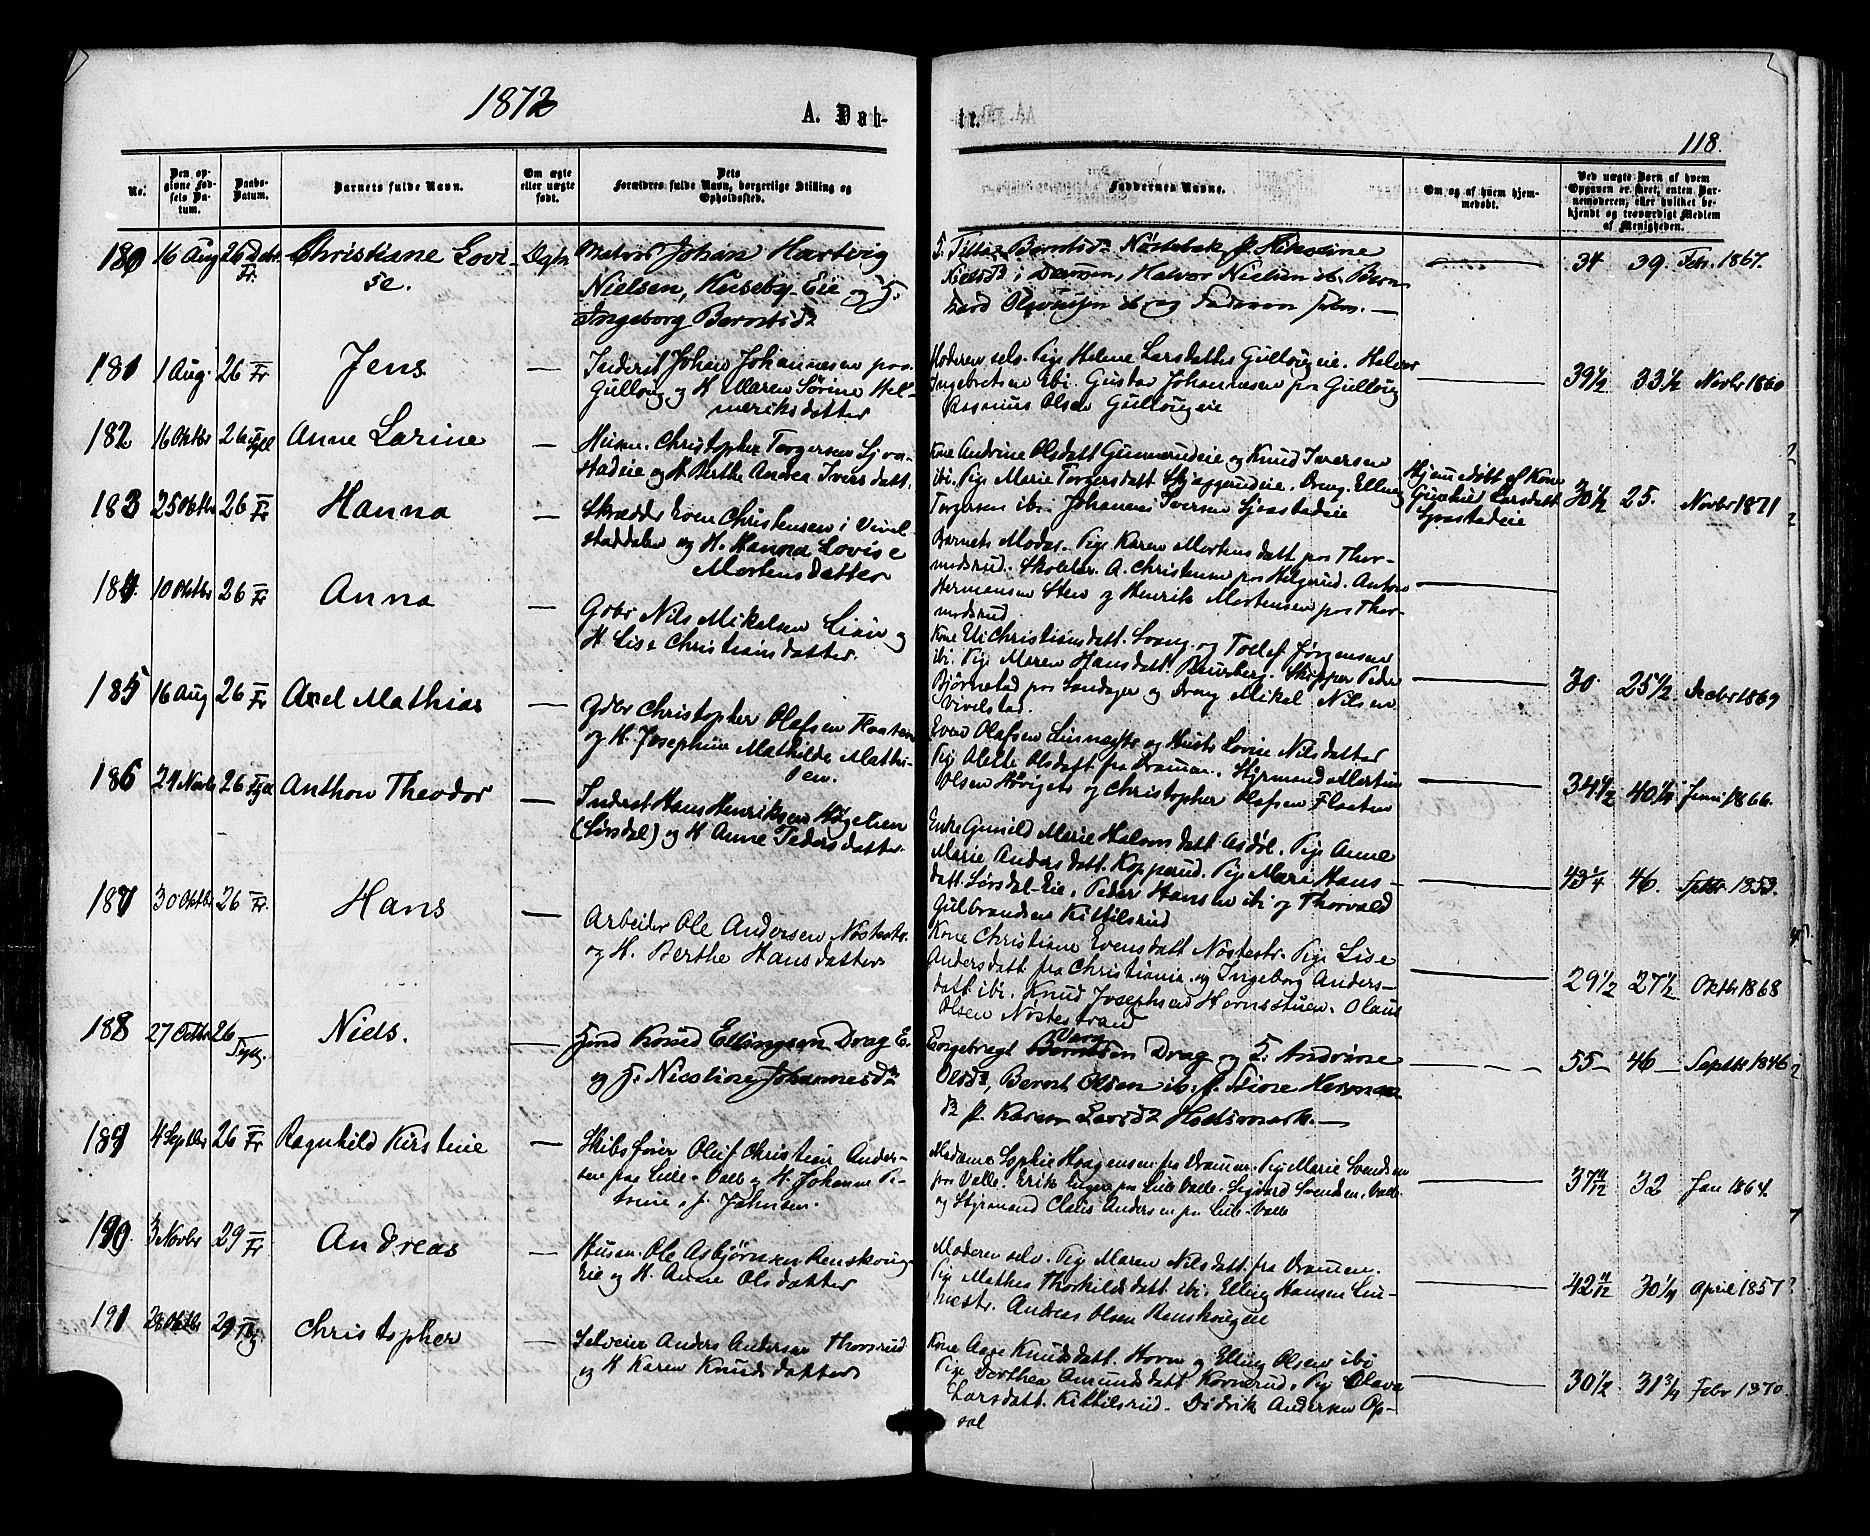 1872
A. Dab-
tr.
118.
No.
Den op-
givne Fød-
sels Da-
tum.
Daabs-
Datum.
Barnets fulde Navn.
Om ægte
eller uægte
født.
Dets
Forældres fulde Navn, borgerlige Stilling og
Opholdssted.
Faddernes Navne.
Om og af hvem hjem-
medøbt.
Ved uægte Børn af hvem
Opgaven er skeet, enten Bar-
nemoderen, eller hvilket be-
kjendt og troværdigt Medlem
af Menigheden.
180 16 Aug 26 Decbr Fr. Christiane Lovi-
se. Ægte Johan Hartvig
Nielsen, Huseby-Eie og H.
Ingeborg Berntsd
Berntsd Nøstebak P. Nikoline
Nielsd i Drammen, Halvor Nielsen ib. Bern-
hard ib. og Faderen
34 39. Febr. 1867.
181 1 Aug. 26 Fr Jens — Inderst Johan Johannesen paa
Gulloug og H Maren Sørine Hel-
meriksdatter
Moderen selv. Pige Helene Larsdatter Gullougeie. Halvor
Ingebretsen ibi. Gustav Johannesen paa Gulloug
Rasmus Olsen Gullougeie
39½ 33½ Novbr 1860
182 16 Oktbr 26 Anne Larine — Husm. Christopher Torgersen Sjva-
stadeie og H. Berthe Andrea Iversdatt.
Kone Andrine Olsdatt Gunnerudeie og Knud Iversen
ibi. Pige Marie Torgersdatt Skjæggerudeie. Dreng. Elling
Torgersen ibi. Johannes Iversen Sjvastadeie
Hjemmedøbt af Kone
Gunhild Larsdatt
Sjvastadeie
30½ 25. Novbr 1871
183 25 Oktbr 26 Fr Hanna — Skrædder Even Christensen i Vivel-
staddalen og H. Hanna Lovise
Mortensdatter
Barnets Moder. Pige Karen Mortensdatt paa Thor-
modsrud. Skolelær. A. Christensen paa Helgerud. Anton
Hermansen Sten og Henrik Mortensen paa Thor-
modsrud
184 10 Oktbr 26 Fr Anna — Gdbr Nils Mikelsen Lian og
H. Lise Christiansdatter.
Kone Christiansdatt. Svang. og Tollef Jørgensen
ibi. Pige Maren Hansdatt. Skipper Peder
Bjørnstad paa Sandager og Dreng Mikal Nilsen
Vivelstad.
30. 25½ Decbr 1869
185 16 Aug 26 Fr Axel Mathias — Gdbr Christopher Olafsen Flaaten
og H. Josephine Mathilde Mathi-
sen.
Even Olafsen Linnes og Hustr. Lovise Nilsdatter
Pige Alette Olsdatt fra Drammen. Styrmand Martin
Olsen og Christopher Olafsen Flaaten
34½ 40¼ Juni 1866.
186 24 Novbr 26 Anthon Theodor — Inderst Hans Henriksen
(Sørsdal) og H Anne Pedersdatter.
Enke Gunild Marie Halvorsdatt Asdøl. Pige Anne
Marie Andersdatt. Kopperud. Pige Mari Hans-
datt Sørsdal-Eie. Peder Hansen ibi og Thorvald
Gulbrandsen Kittilsrud
43¼ 46. Septbr 1853.
187 30 Oktbr 26 Fr. Hans — Arbeider Ole Andersen Nøstestr.
og H. Berthe Hansdatter
Kone Christiane Evensdatt Nøstestr. Pige Lise
Andersdatt. fra Christiania. og Ingeborg Anders-
datt ibi. Knud Josephsen Hornsstuen. Olaus
Olsen Nøstestrand
29½ 27½ Oktbr 1868
188 27 Octbr 26 Niels. — Knud Ellingsen Drag E.
og H. Nicoline Johannesd
Engebregt Drag og H. Andrine
Olsd, Bernt Olsen ib. P. Herman
d P. Karen Larsd
55 — 46 — Septbr 1846
189 4 Septbr 26 Fr Ragnhild Kirstine — Skibsfører Oluf Christian Ander-
sen paa Lille-Valle og H. Johanne Pe-
trine, f. Johnsen.
Madame Sophie Haagensen fra Drammen. Pige Marie Svendsen
paa Valle. Erik paa Lille Valle. Sigvard Svendsen, Valle
og Styrmand Claus Andersen paa Lille-Valle
37 11/12 32 Jan 1864.
190. 3 Novbr 29 Fr Andreas — Husm. Ole Asbjørnsen Renskoug-
Eie og H. Anne Olsdatter
Moderen selv. Pige Maren Nilsdatt. fra Drammen.
Pige Mathea Thorkildsdatt. ibi. Elling Hansen Lin-
nestr. Andreas Olsen Renskougeie
42 11/12 30¼ April 1857
191 28 Oktbr 29 Christopher — Selveier Anders Andersen Thorsrud
og H Karen Knudsdatter
Kone Aase Knudsdatt. Horn og Elling Olsen ibi
Pige Dorthea Amundsdatt Kornerud. Pige Olava
Larsdatt. Kittilsrud. Didrik Andersen Op-
sal
30½ 31¾ Febr 1870